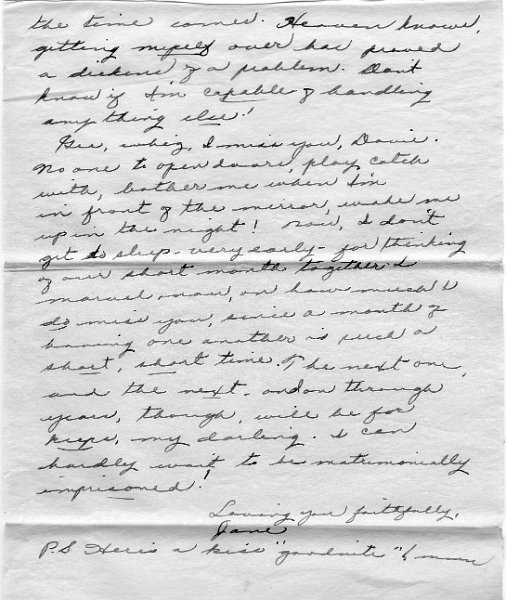 the time comes. Heaven knows,
getting myself over has proved
a dickens of a problem. Don't
know if I'm capable of handling
anything else!
Gee, whiz, I miss you, Davie.
No one to open doors, play catch
with, bother me when I'm
in front of the mirror, wake me
up in the night! Now, I don't
get to sleep - very early - for thinking
of our short month together. I
marvel, now, on how much I
do miss you, since a month of
having one another is such a
short, short time. The next one,
and the next - and on through
years, though, will be for
keeps, my darling. I can
hardly wait to be matrimonially
imprisoned!
Loving you faithfully,
Jane
P.S. Here's a kiss "goodnite"